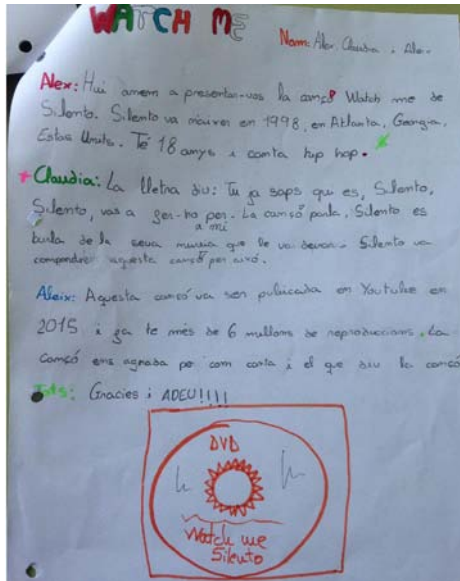 WATCH ME
Nom: Alex, Claudia i Aleix
Alex: Hui anem a presentar-vos la cançó Watch me de
Silento. Silento va nàixer en 1998, en Atlanta, Georgia,
Estas Units. Té 18 anys i canta hip hop.
Claudia: La lletra diu: Tu ja saps qui es, Silento,
Silento, vas a fer-ho per
a mi
La cansó parla, Silento es
burla de la seua que le va deixar. Silento va
aquesta cançó per aixó.
Aleix: Aquesta cansó va ser publicada en Youtube en
2015 i ja te mès de 6 millons de reproduccions. La
cancó ens agrada pe com canta i el que diu la cancó
Tots: Gracies i ADEU!!!!
DVD
Watch me
Silento